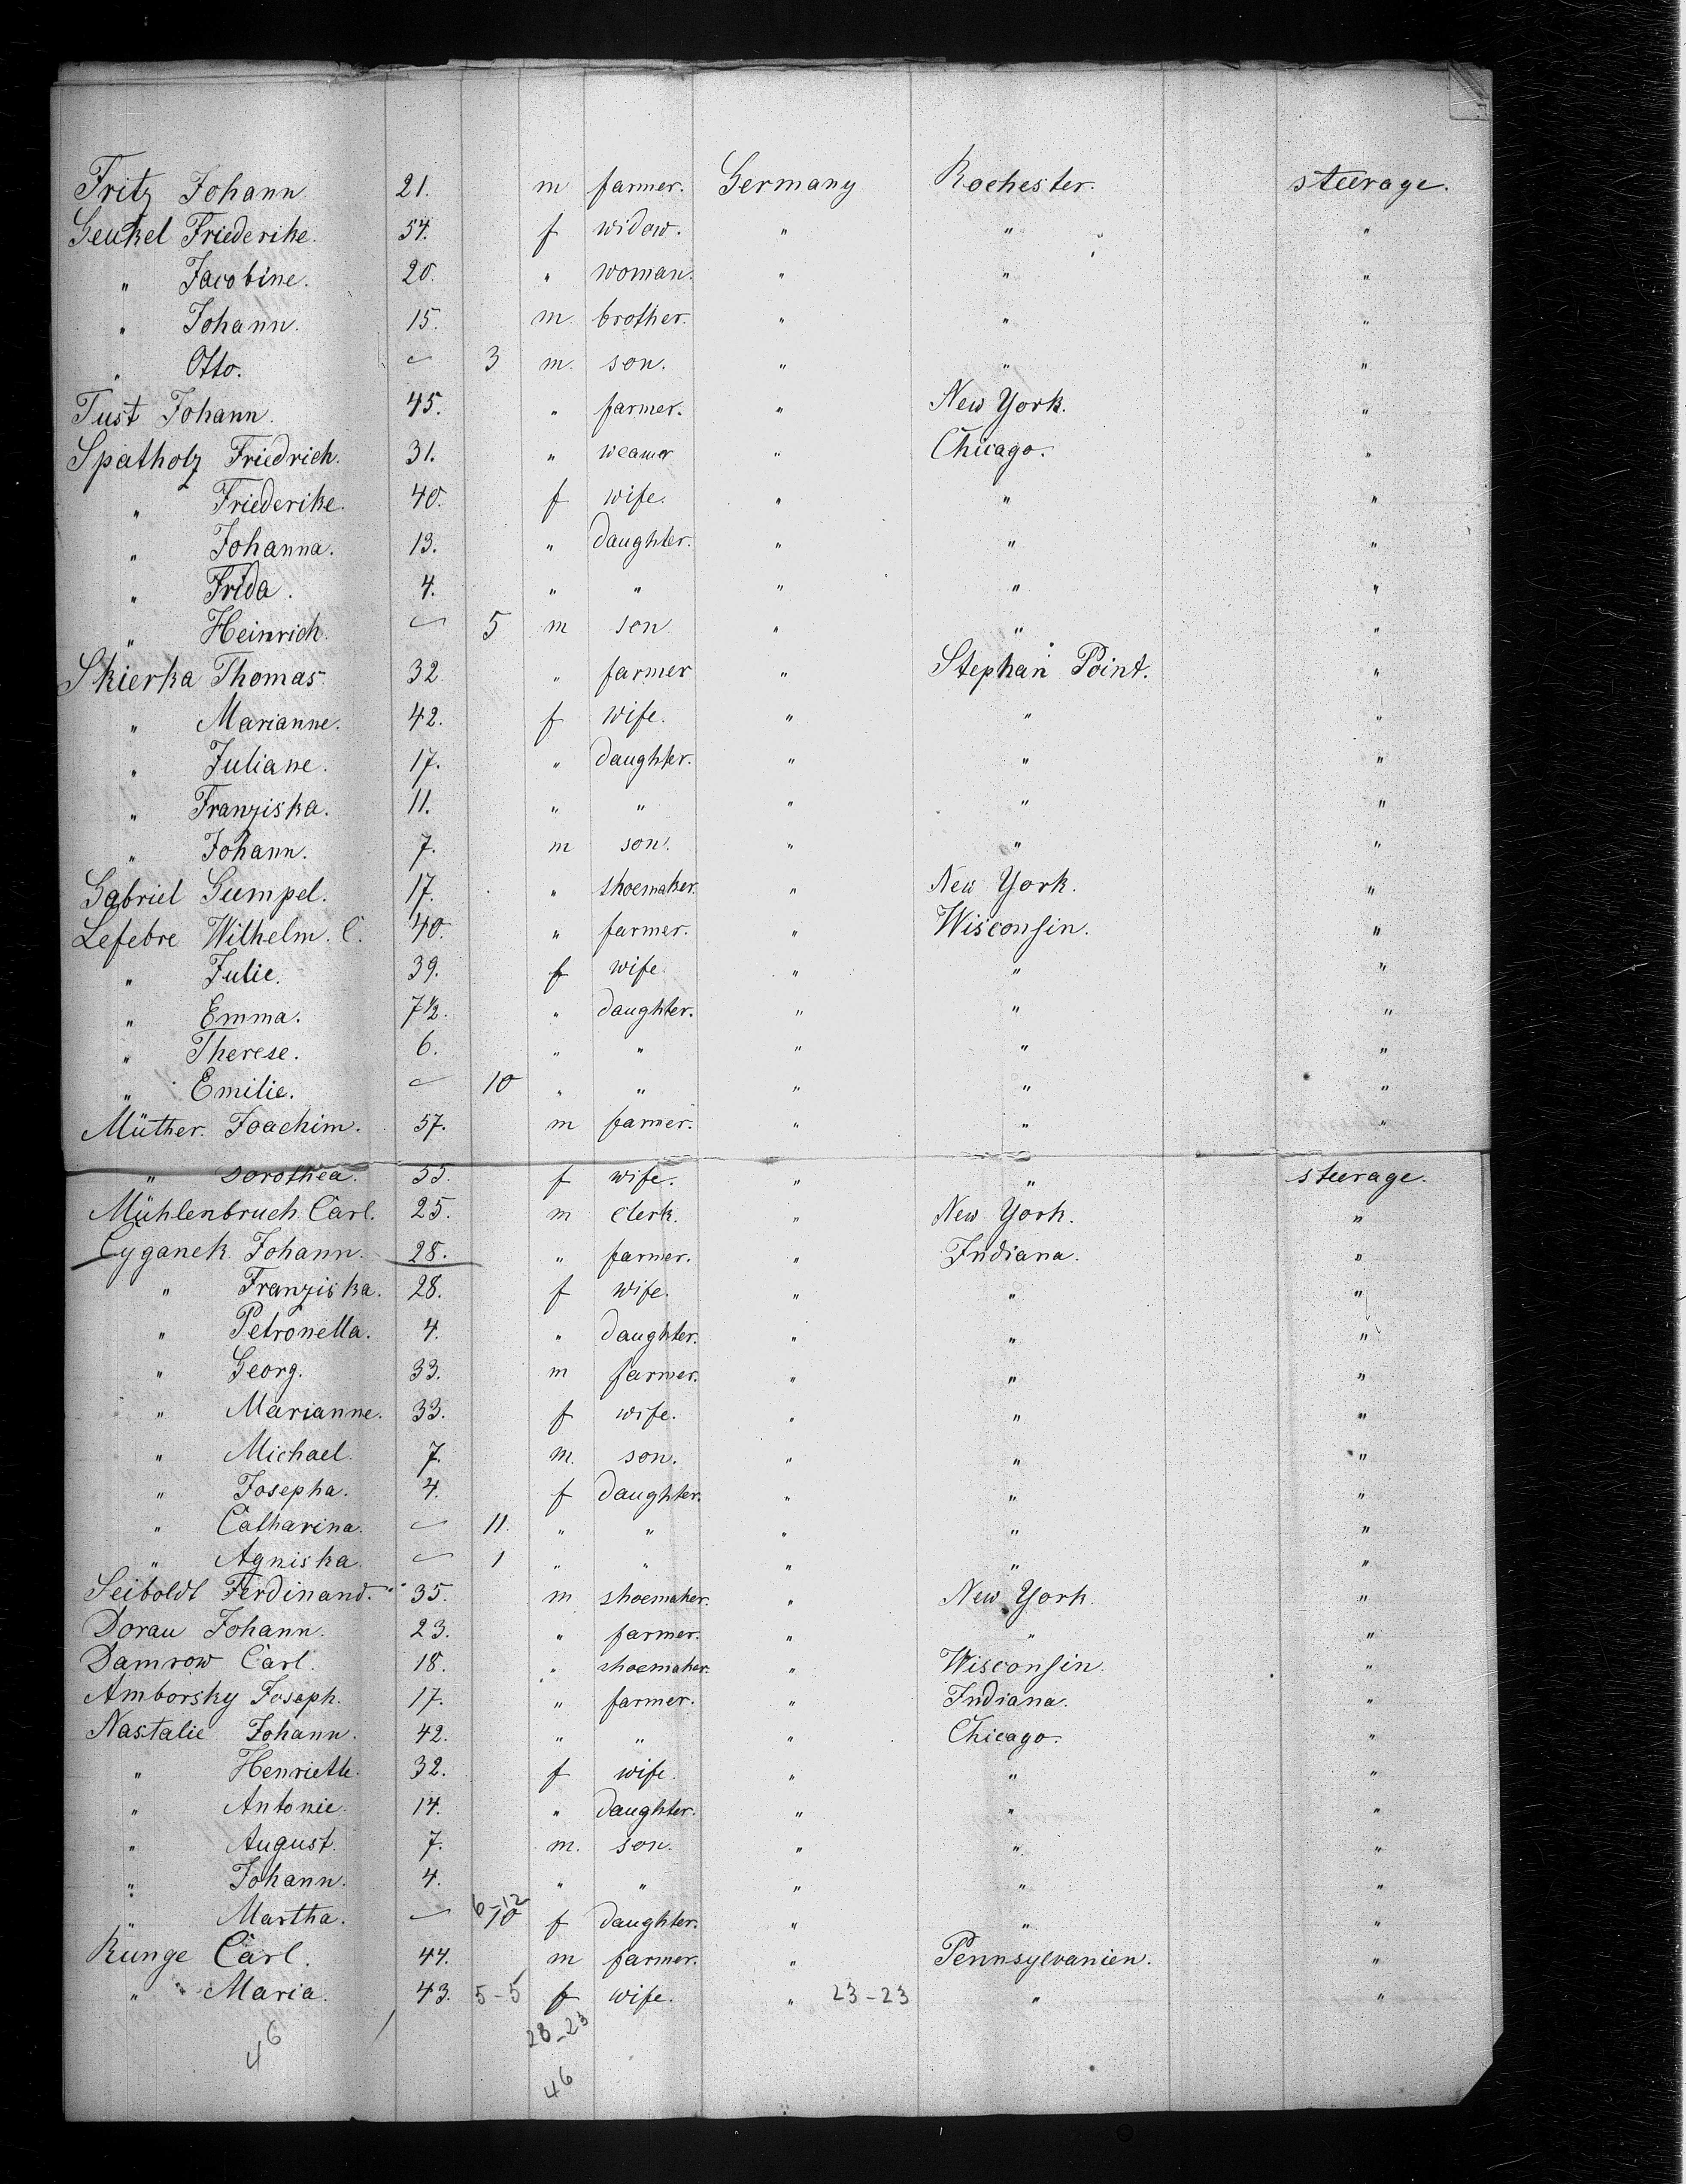 Fritz Johann 21. m farmer. Germany Rochester. steerage.
Geukel Friederike. 54. f widow. " " "
" Jacobine. 20. " woman. " " "
" Johann. 15. m. brother. " " "
" Otto. 3 m. son. " " "
Tust Johann. 45. " farmer. " New York. "
Spatholz Friedrich. 31. " weawer " Chicago. "
" Friederike. 40. f wife. " " "
" Johanna. 13. " daughter. " " "
" Frida. 4. " " " " "
" Heinrich. 5 m son " " "
Skierka Thomas. 32. " farmer " Stephan Point. "
" Marianne. 42. f wife. " " "
" Juliane. 17. " daughter. " " "
" Franziska. 11. " " " " "
" Johann. 7. m son. " " "
Gabriel Gumpel. 17. " shoemaker. " New York. "
Lefebre Wilhelm. C. 40. " farmer. " Wisconsin. "
" Julie. 39. f wife. " " "
" Emma. 7½. " daughter. " " "
" Therese. 6. " " " " "
" Emilie. 10 " " " " "
Müther. Joachim. 57. m farmer. " " "
" Dorothea. 55. f wife. " " steerage.
Mühlenbruch Carl. 25. m clerk. " New York. "
Cyganek Johann. 28. " farmer. " Indiana. "
" Franziska. 28. f wife. " " "
" Petronella. 4. " daughter. " " "
" Georg. 33. m farmer. " " "
" Marianne. 33. f wife. " " "
" Michael. 7. m. son. " " "
" Josepha. 4. f daughter. " " "
" Catharina. 11. " " " " "
" Agniska. 1 " " " " "
Seiboldt Ferdinand. 35. m shoemaker. " New York. "
Dorau Johann. 23. " farmer. " " "
Damrow Carl. 18. " shoemaker. " Wisconsin. "
Amborsky Joseph. 17. " farmer. " Indiana. "
Nastalie Johann. 42. " " " Chicago. "
" Henriette. 32. f wife. " " "
" Antonie. 14. " daughter. " " "
" August. 7. m. son. " " "
" Johann. 4. " " " " "
6-12
" Martha. 10 f daughter. " " "
Runge Carl. 44. m farmer. " Pennsylvanien. "
" Maria. 43. 5-5 f wife. " 23-23 " "
28-23
46
46